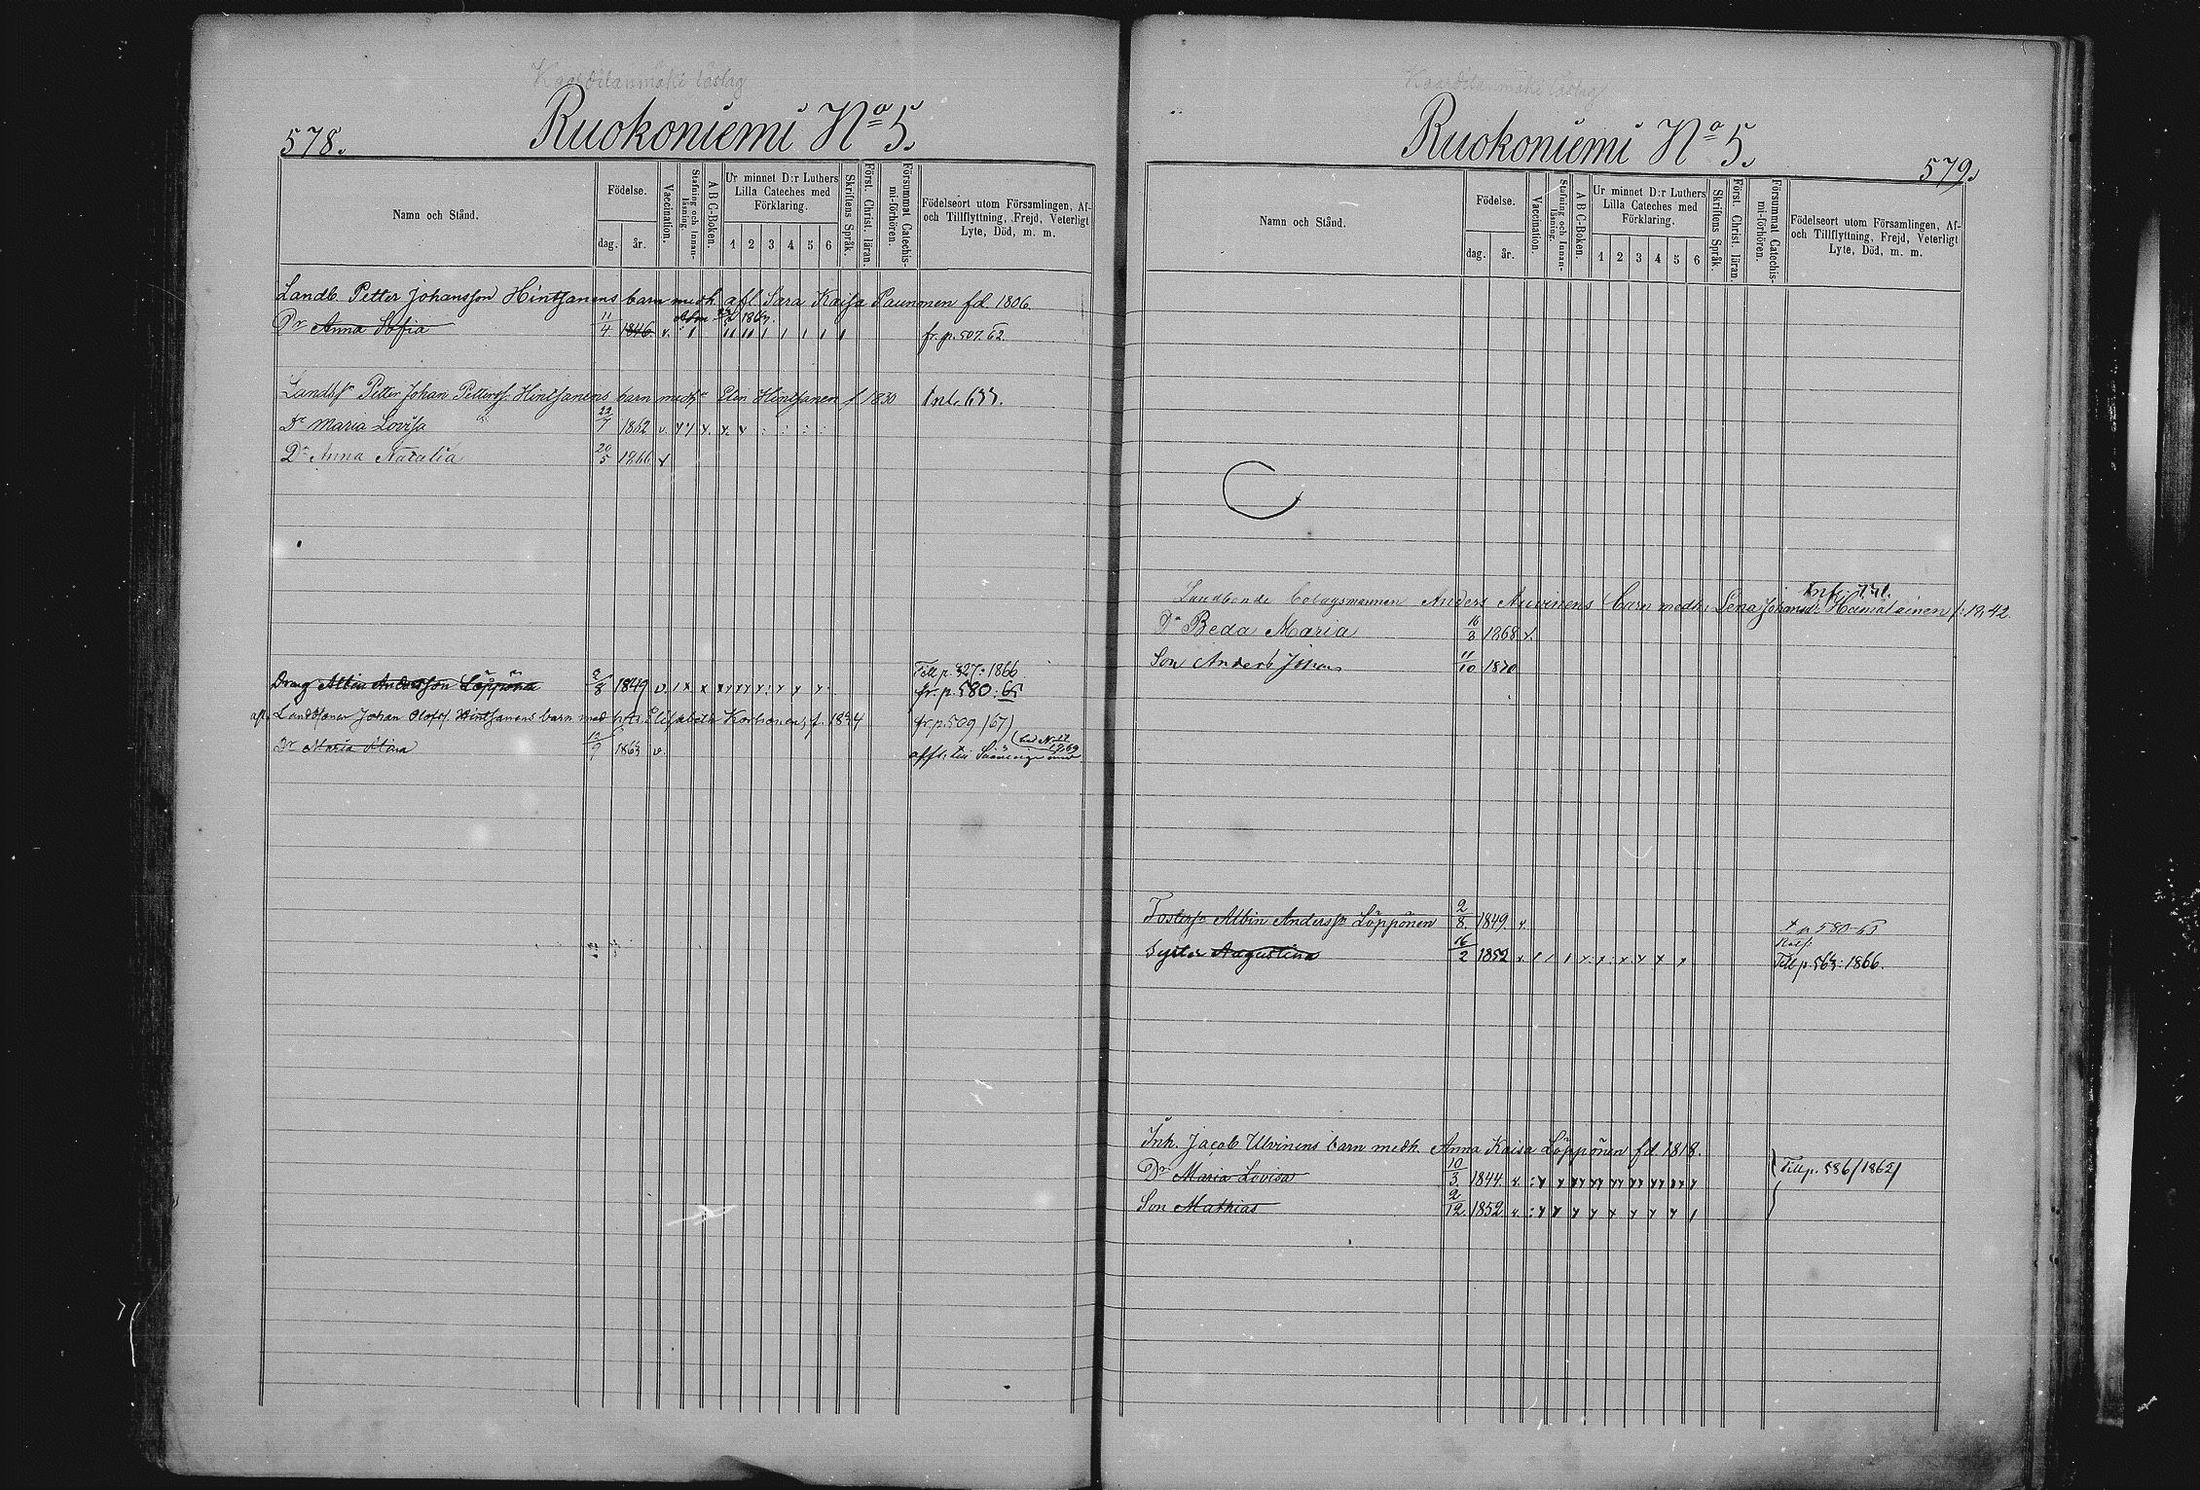 Kaartilanmäki läslag
Ruokoniemi No 5.
578.
Namn och Stånd.
Födelse.
dag.
år.
Vaccination.
Stafning och Innan-läsning.
A B C-Boken.
Ur minnet D:r Luthers
Lilla Cateches med
Förklaring.
1 2 3 4 5 6
Skriftens Språk.
Först. Christ. läran.
Försummat Catechis-mi-förhören.
Födelseort utom Församlingen, Af-
och Tillflyttning, Frejd, Veterligt
Lyte, Död, m. m.
Landb. Petter Johansson Hintsanens barn medh. afl. Sara Kaisa Paunonen fd 1806.
Dr Anna Sofia 11/4 1846. v. fr. p. 507. 62.
Petter Johan Petterss. Hintsanens barn Elin Hintsanen f 1830 Inl. 677.
Dr Maria Lovisa 22/7 1862 v.
Dr Anna Natalia 20/5 1866 v
Till p. 327: 1866.
Dräng Albin Andersson Löppönen 2/8 1849 v fr. p. 580: 65
afl. Johan Olofss. Hintsanens barn med Elisabeth Korhonen, f. 1834 fr p. 509 /67/
Dr Maria Stina 12/9 1863 v. affl. till Säminge
1869
Kaartilanmäki läslag
Ruokoniemi No 5.
579.
Namn och Stånd.
Födelse.
dag.
år.
Vaccination.
Stafning och Innan-läsning.
A B C-Boken.
Ur minnet D:r Luthers
Lilla Cateches med
Förklaring.
1 2 3 4 5 6
Skriftens Språk.
Först. Christ. läran.
Försummat Catechis-mi-förhören.
Födelseort utom Församlingen, Af-
och Tillflyttning, Frejd, Veterligt
Lyte, Död, m. m.
Landbonde bolagsmannen Anders Auvinens barn medh. Lena Johansdr Hämäläinen f. 1842.
Dr Beda Maria 16/3 1868 v.
Son Anders Johan 11/10 1870
Fosterson Albin Anderss. Löppönen 2/8. 1849. v p 580-65
Syster Augustina 16/2 1852 v Till p. 563: 1866.
Inh. Jacob Ulvinens barn medh. Anna Kaisa Löppönen fd 1818.
Dr Maria Lovisa 10/3. 1844. v. Till p. 586/1862/
Son Mathias 2/12. 1852. v